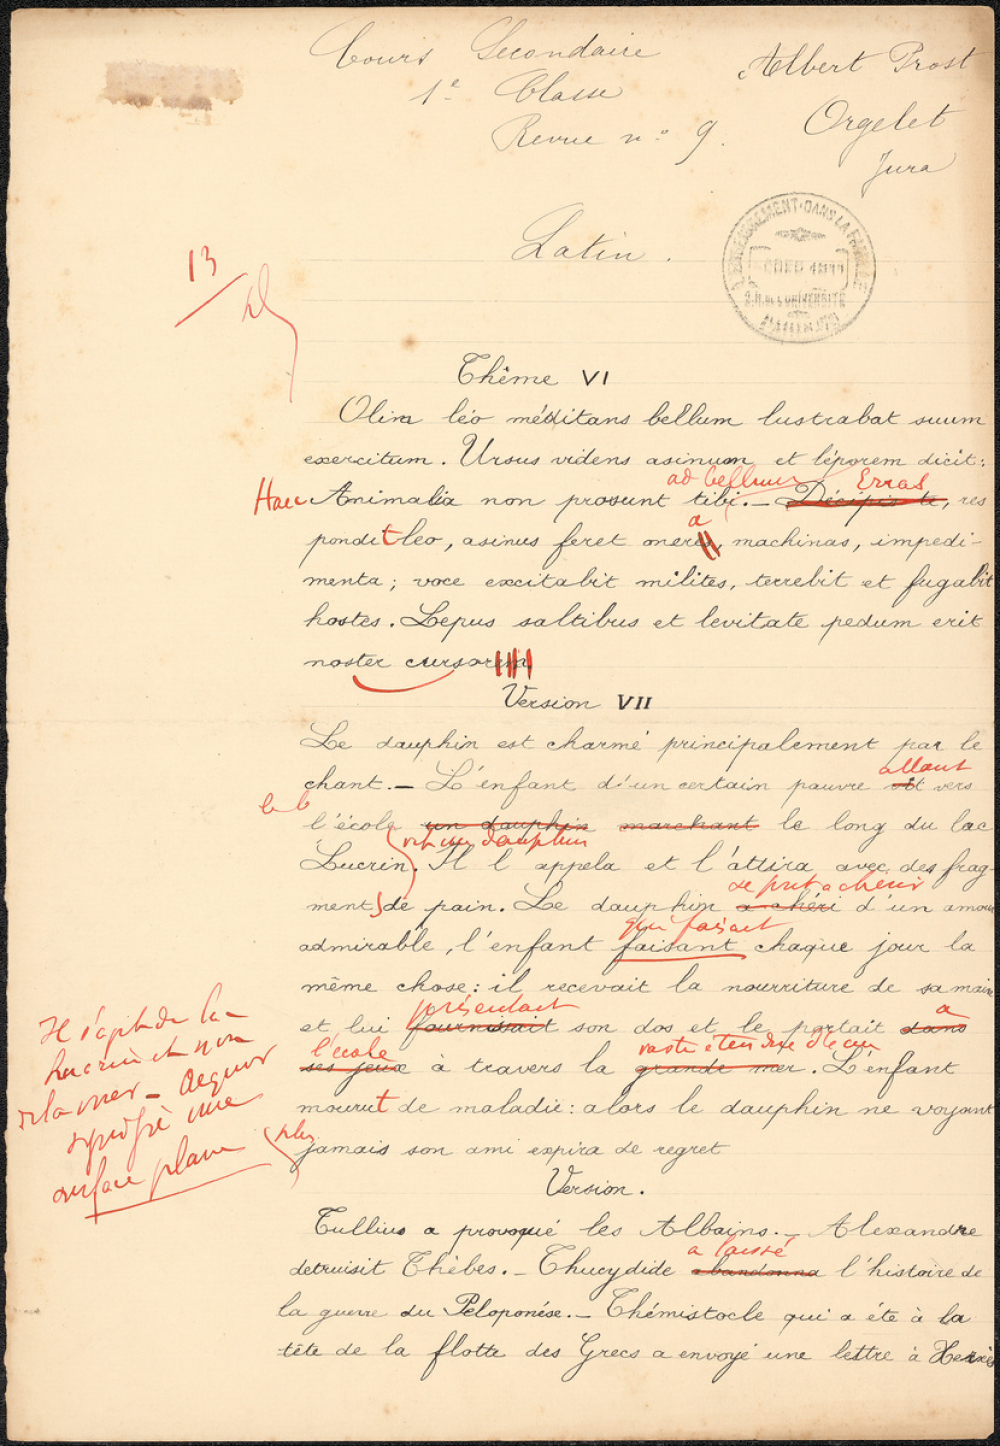 Cours Secondaire
Albert Prost
1e Classe
Orgelet
Revue n° 9.
Jura
Latin.
L'ENSEIGNEMENT DANS LA FAMILLE
13
Thême VI
Olim léo méditans bellum lustrabat suum
exercitum. Ursus videns asinum et léporem dicit:
ad bellum Erras
Haec Animalia non prosunt tibi. – Décipis te, res
a
pondit leo, asinus feret oneris, machinas, impedi-
menta; voce excitabit milites, terrebit et fugabit
hostes. Lepus saltibus et levitate pedum erit
noster cursorem
Version VII
Le dauphin est charmé principalement par le
chant. – L'enfant d'un certain pauvre vit vers
allant
l'école un dauphin marchant le long du lac
vit un dauphin
Lucrin. Il l'appela et l'attira avec des frag-
se prit a chérir
ments de pain. Le dauphin a chéri d'un amour
qui faisait
admirable, l'enfant faisant chaque jour la
même chose: il recevait la nourriture de sa main
présentait a
et lui fournissait son dos et le portait dans
l'école vaste étendue d'eau
ses jeux à travers la grande mer. L'enfant
mourut de maladie: alors le dauphin ne voyant
plus
jamais son ami expira de regret
Il s'agit du lac
Lucrin et non
de la mer – Aequor
signifie une
surface plane
Version.
Tullius a provoqué les Albains. – Alexandre
a laissé
detruisit Thèbes. – Thucydide abandonna l'histoire de
la guerre du Péloponése. – Thémistocle qui a été à la
tête de la flotte des Grecs a envoyé une lettre à Xerxès